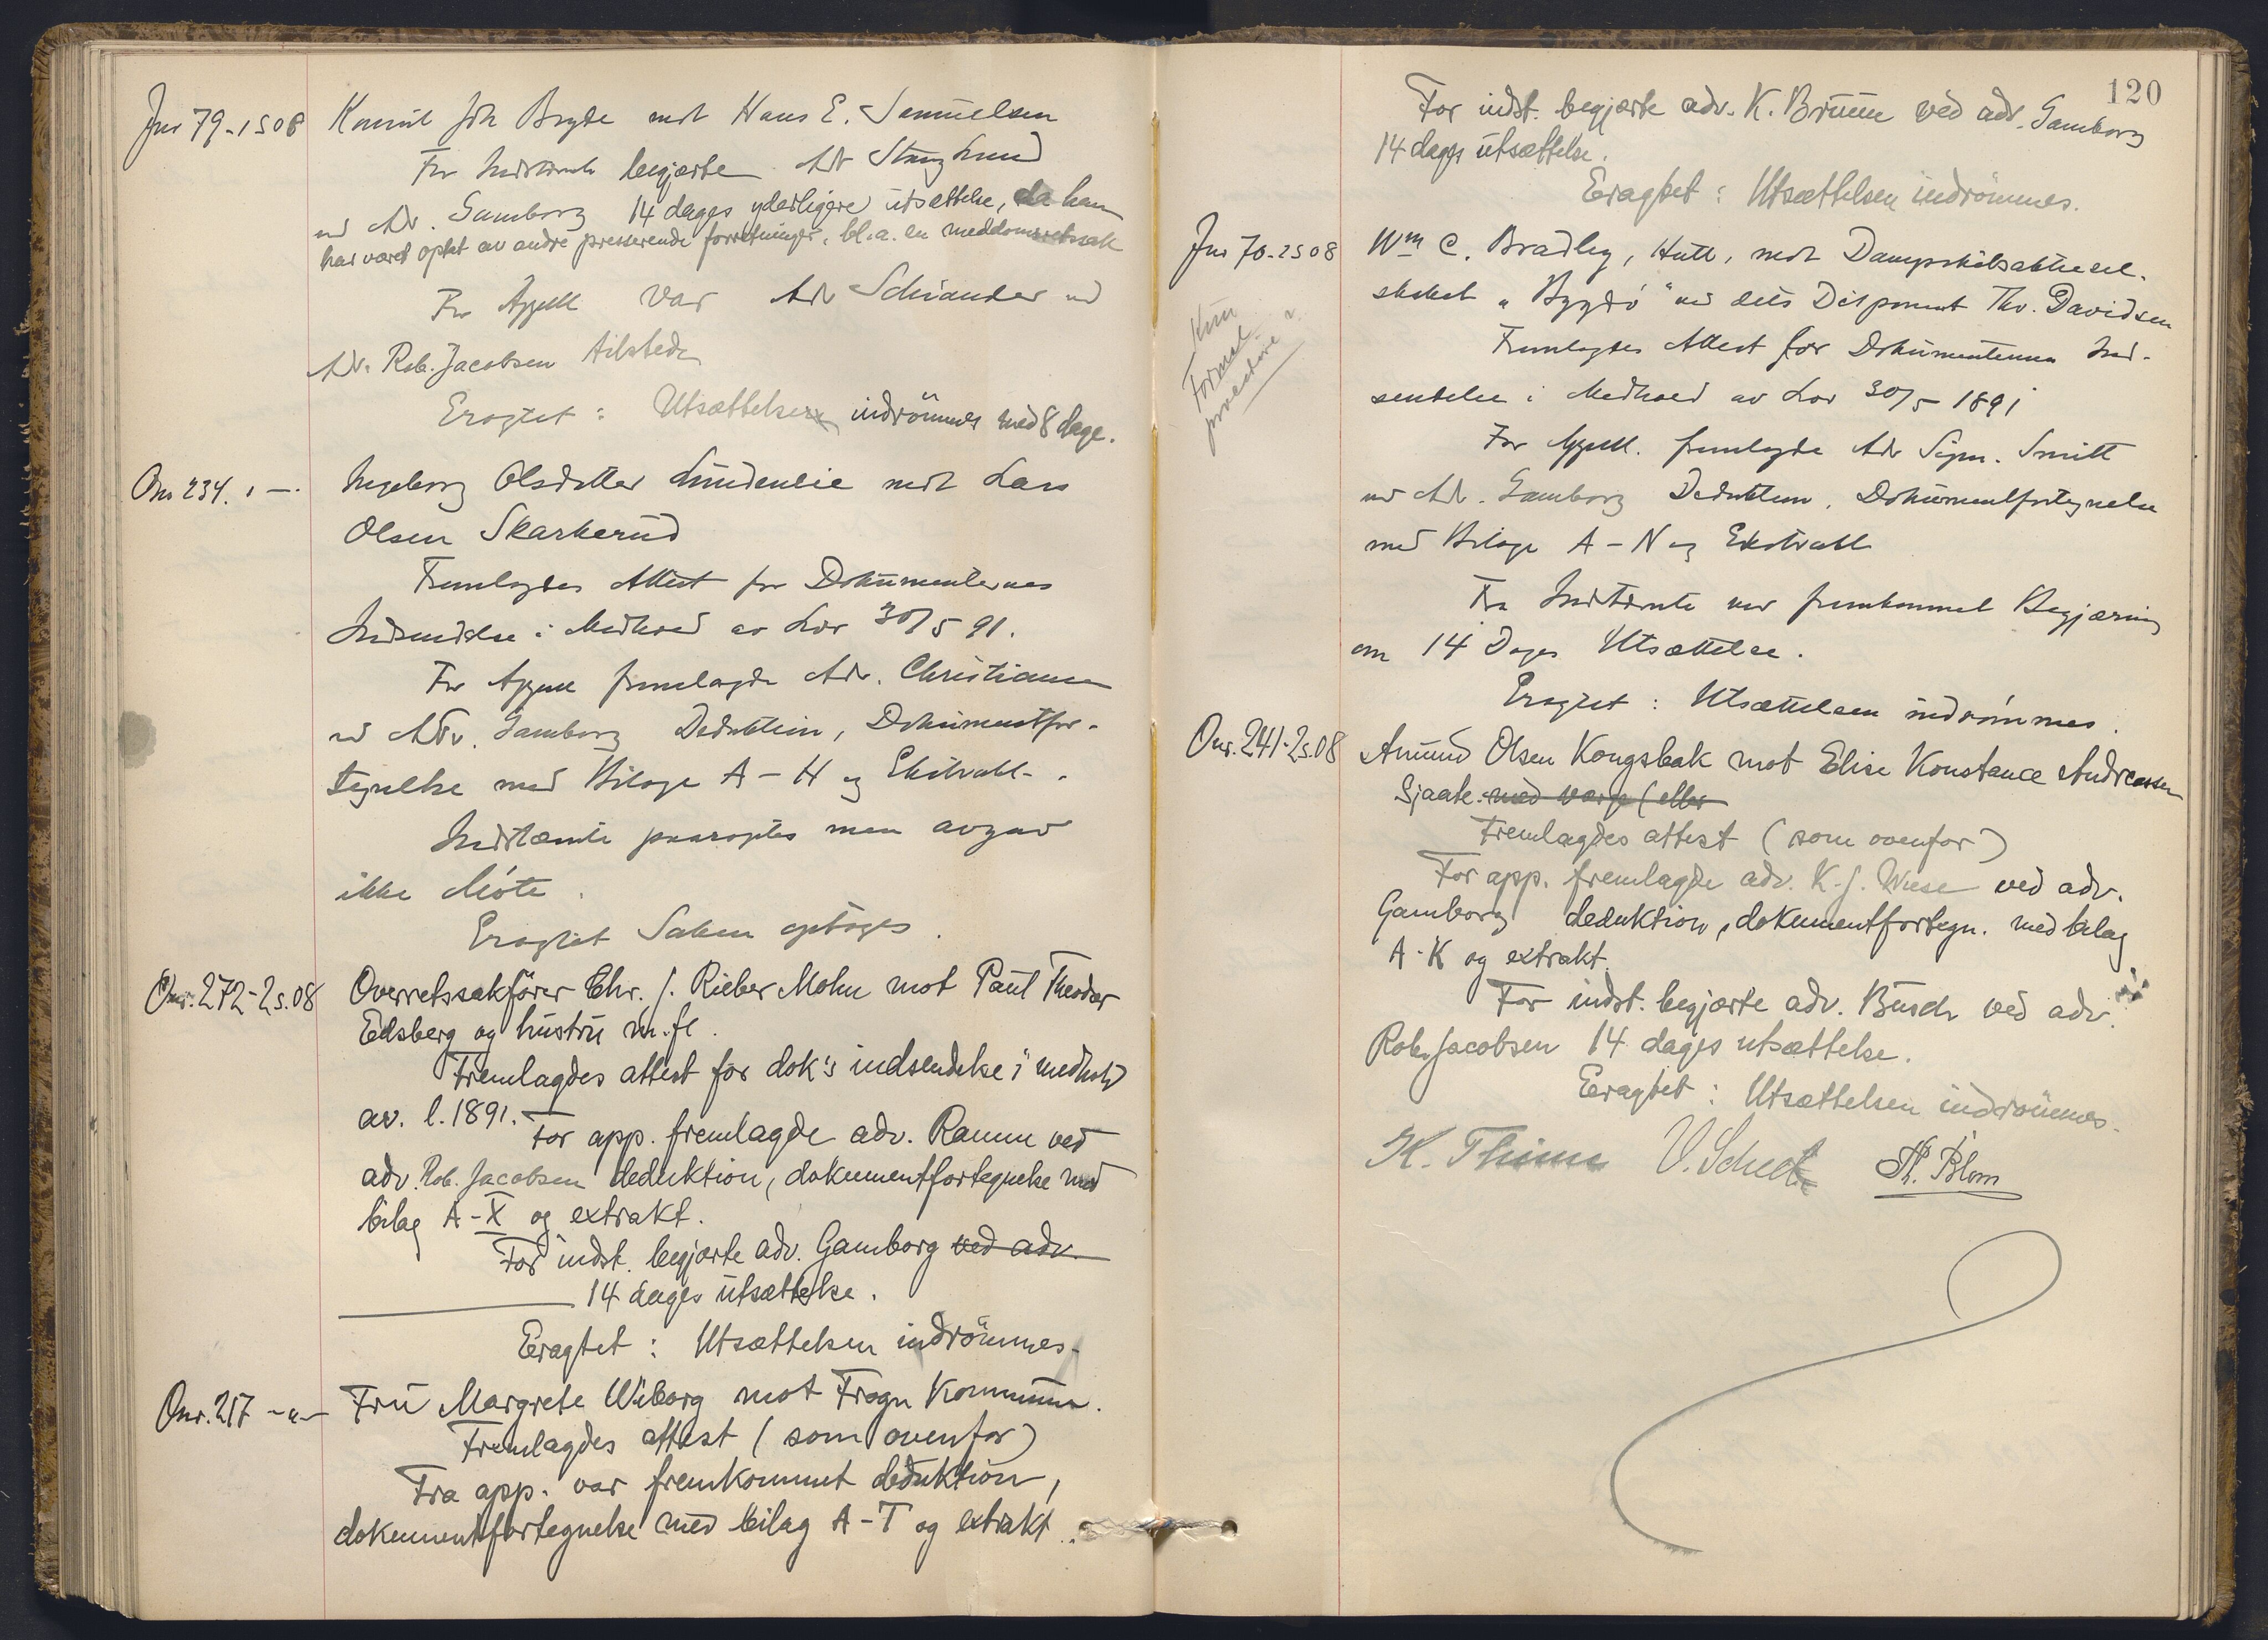 Jnr 79-1s08 Konsul Joh Bryde mot Hans E. Samuelsen
For Indstevnte begjærte Adv Stang Lund
ved Adv. Gamborg 14 dages yderligere utsættelse, da han
har været optat av andre presserende forretninger, bl.a. en meddomsretssak
For Appell var Adv Schiander ved
Adv. Rob. Jacobsen tilstede
Eragtet: Utsættelsen indrømmes med 8 dage.
Onr 234. 1 — Ingeborg Olsdatter Lundenlie mot Lars
Olsen Skarkerud
Fremlagdes Attest for Dokumenternes
Indsendelse i Medhold av Lov 30/5 91.
For Appell fremlagde Adv. Christiansen
ved Adv. Gamborg Deduktion, Dokumentfor-
tegnelse med Bilage A-H og Ekstrakt.
Indstævnte paaroptes men avgav
ikke Møte.
Eragtet Saken optages.
Onr. 272-2s.08 Overretssakfører Chr. J. Rieber Mohn mot Paul Theodor
Edsberg og hustru m. fl.
Fremlagdes attest for dok's indsendelse i medhold
av. l. 1891.
For app. fremlagde adv. Ramm ved
adv. Rob. Jacobsen deduktion, dokumentfortegnelse med
bilag A-X og extrakt.
For indst. begjærte adv. Gamborg ved adv.
14 dages utsættelse.
Eragtet: Utsættelsen indrømmes.
Onr. 217 -"- Fru Margrete Wiborg mot Frogn Kommune.
Fremlagdes attest (som ovenfor)
Fra app. var fremkommet deduktion,
dokumentfortegnelse med bilag A-T og extrakt.
120
For indst. begjærte adv. K. Bruun ved adv. Gamborg
14 dages utsættelse.
Eragtet: Utsættelsen indrømmes.
Jnr 70-2s08 Wm C. Bradley, Hull, mot Dampskibsaktiesel-
skabet "Bygdø" ved dets Disponent Thv. Davidsen
Kun
Formal-
procedure
Fremlagdes Attest for Dokumenternes Ind-
sendelse i Medhold av Lov 30/5 1891
For Appell. fremlagde Adv Sigm. Smitt
ved Adv. Gamborg Deduktion, Dokumentfortegnelse
med Bilage A-N og Ekstrakt
Fra Indstævnte var fremkommet Begjæring
om 14 Dages Utsættelse.
Eragtet: Utsættelsen indrømmes.
Onr. 241-2s.08 Amund Olsen Kongsbak mot Elise Konstance Andreassen
Sjaate. med værge (eller
Fremlagdes attest (som ovenfor)
For app. fremlagde adv. K. J. Wiese ved adv.
Gamborg deduktion, dokumentfortegn. med bilag
A-K og extrakt.
For indst. begjærte adv. Busch ved adv.
Rob. Jacobsen 14 dages utsættelse.
Eragtet: Utsættelsen indrømmes.
K. Thinn V. Scheel Th. Blom